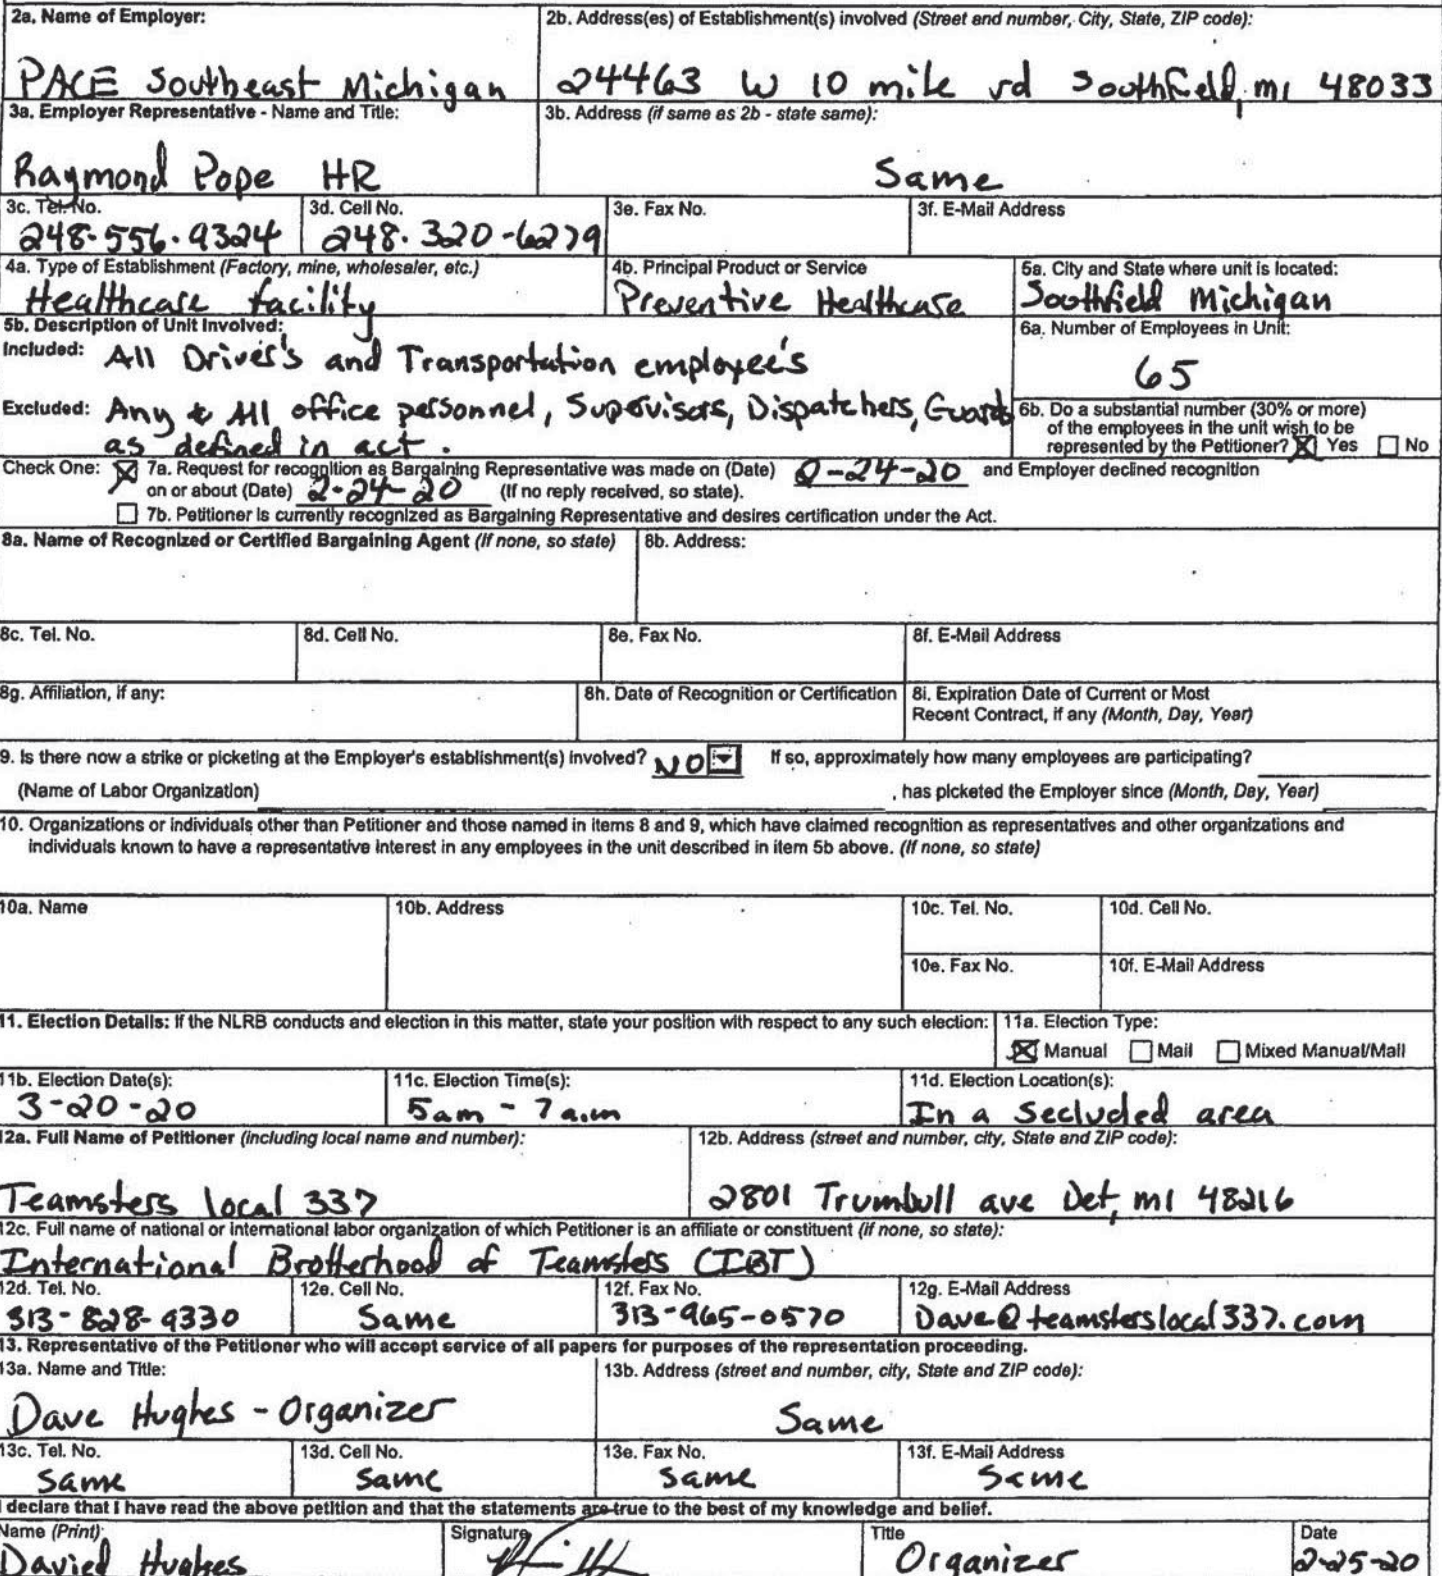 2a. Name of Employer:
2b. Address(es) of Establishment(s) involved (Street and number, City, State, ZIP code):
PACE Southeast Michigan
24463 W 10 mile rd Southfield, mi 48033
3a. Employer Representative - Name and Title:
3b. Address (if same as 2b - state same):
Raymond Pope HR
Same
3c. Tel. No.
3d. Cell No.
3e. Fax No.
3f. E-Mail Address
248-556-9324
248-320-6279
4a. Type of Establishment (Factory, mine, wholesaler, etc.)
4b. Principal Product or Service
5a. City and State where unit is located:
Healthcare facility
Preventive Healthcare
Southfield Michigan
5b. Description of Unit Involved:
6a. Number of Employees in Unit:
Included: All Driver's and Transportation employee's
65
Excluded: Any & All office personnel, Supervisors, Dispatchers, Guards
as defined in act.
6b. Do a substantial number (30% or more)
of the employees in the unit wish to be
represented by the Petitioner? Yes No
Check One: 7a. Request for recognition as Bargaining Representative was made on (Date) 2-24-20 and Employer declined recognition
on or about (Date) 2-24-20 (If no reply received, so state).
7b. Petitioner is currently recognized as Bargaining Representative and desires certification under the Act.
8a. Name of Recognized or Certified Bargaining Agent (if none, so state)
8b. Address:
8c. Tel. No.
8d. Cell No.
8e. Fax No.
8f. E-Mail Address
8g. Affiliation, if any:
8h. Date of Recognition or Certification
8i. Expiration Date of Current or Most
Recent Contract, if any (Month, Day, Year)
9. Is there now a strike or picketing at the Employer's establishment(s) involved? NO If so, approximately how many employees are participating?
(Name of Labor Organization) , has picketed the Employer since (Month, Day, Year)
10. Organizations or individuals other than Petitioner and those named in items 8 and 9, which have claimed recognition as representatives and other organizations and
individuals known to have a representative interest in any employees in the unit described in item 5b above. (If none, so state)
10a. Name
10b. Address
10c. Tel. No.
10d. Cell No.
10e. Fax No.
10f. E-Mail Address
11. Election Details: If the NLRB conducts and election in this matter, state your position with respect to any such election:
11a. Election Type:
Manual Mail Mixed Manual/Mail
11b. Election Date(s):
11c. Election Time(s):
11d. Election Location(s):
3-20-20
5am - 7a.m
In a secluded area
12a. Full Name of Petitioner (including local name and number):
12b. Address (street and number, city, State and ZIP code):
Teamsters local 337
2801 Trumbull ave Det, mi 48216
12c. Full name of national or international labor organization of which Petitioner is an affiliate or constituent (if none, so state):
International Brotherhood of Teamsters (IBT)
12d. Tel. No.
12e. Cell No.
12f. Fax No.
12g. E-Mail Address
313-828-9330
Same
313-965-0570
Dave@teamsterslocal337.com
13. Representative of the Petitioner who will accept service of all papers for purposes of the representation proceeding.
13a. Name and Title:
13b. Address (street and number, city, State and ZIP code):
Dave Hughes - Organizer
Same
13c. Tel. No.
13d. Cell No.
13e. Fax No.
13f. E-Mail Address
Same
Same
Same
Same
I declare that I have read the above petition and that the statements are true to the best of my knowledge and belief.
Name (Print)
Signature
Title
Date
Davied Hughes
Organizer
2-25-20